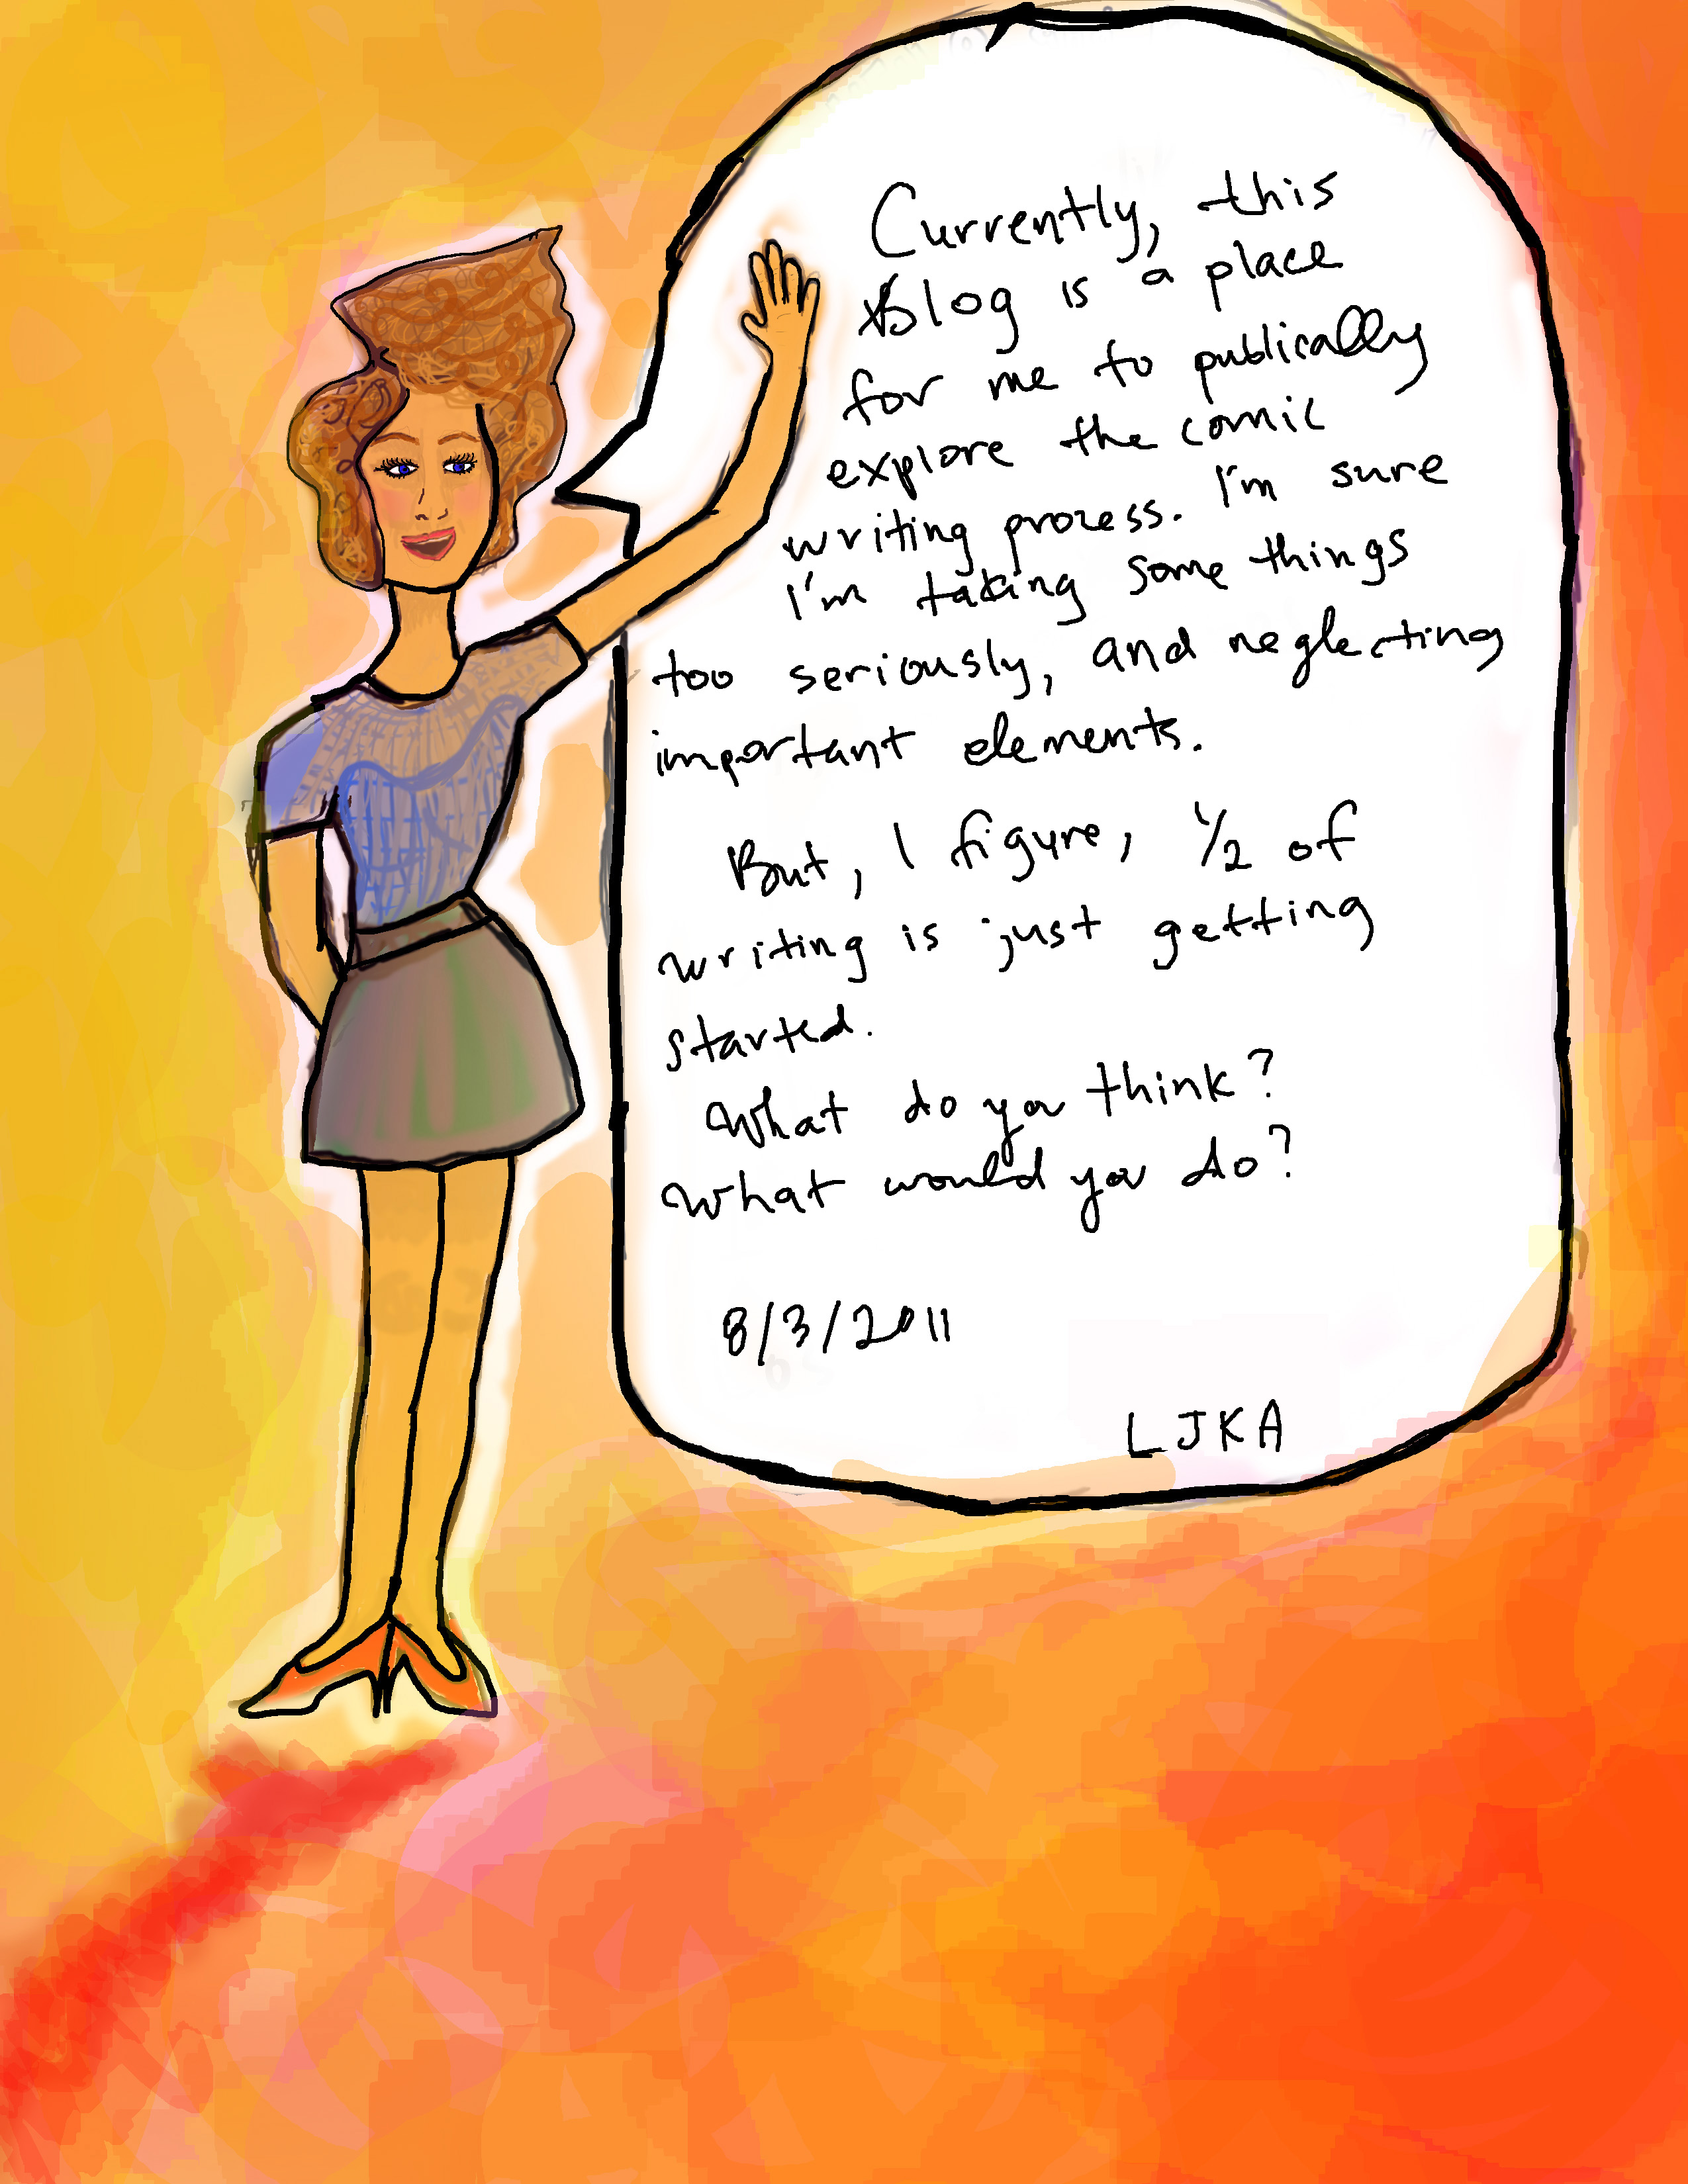 Currently, this
Blog is a place
for me to publically
explore the comic
writing process. I'm sure
I'm taking some things
too seriously, and neglecting
important elements.
But, I figure, 1/2 of
writing is just getting
started.
What do you think?
What would you do?
8/3/2011
LJKA